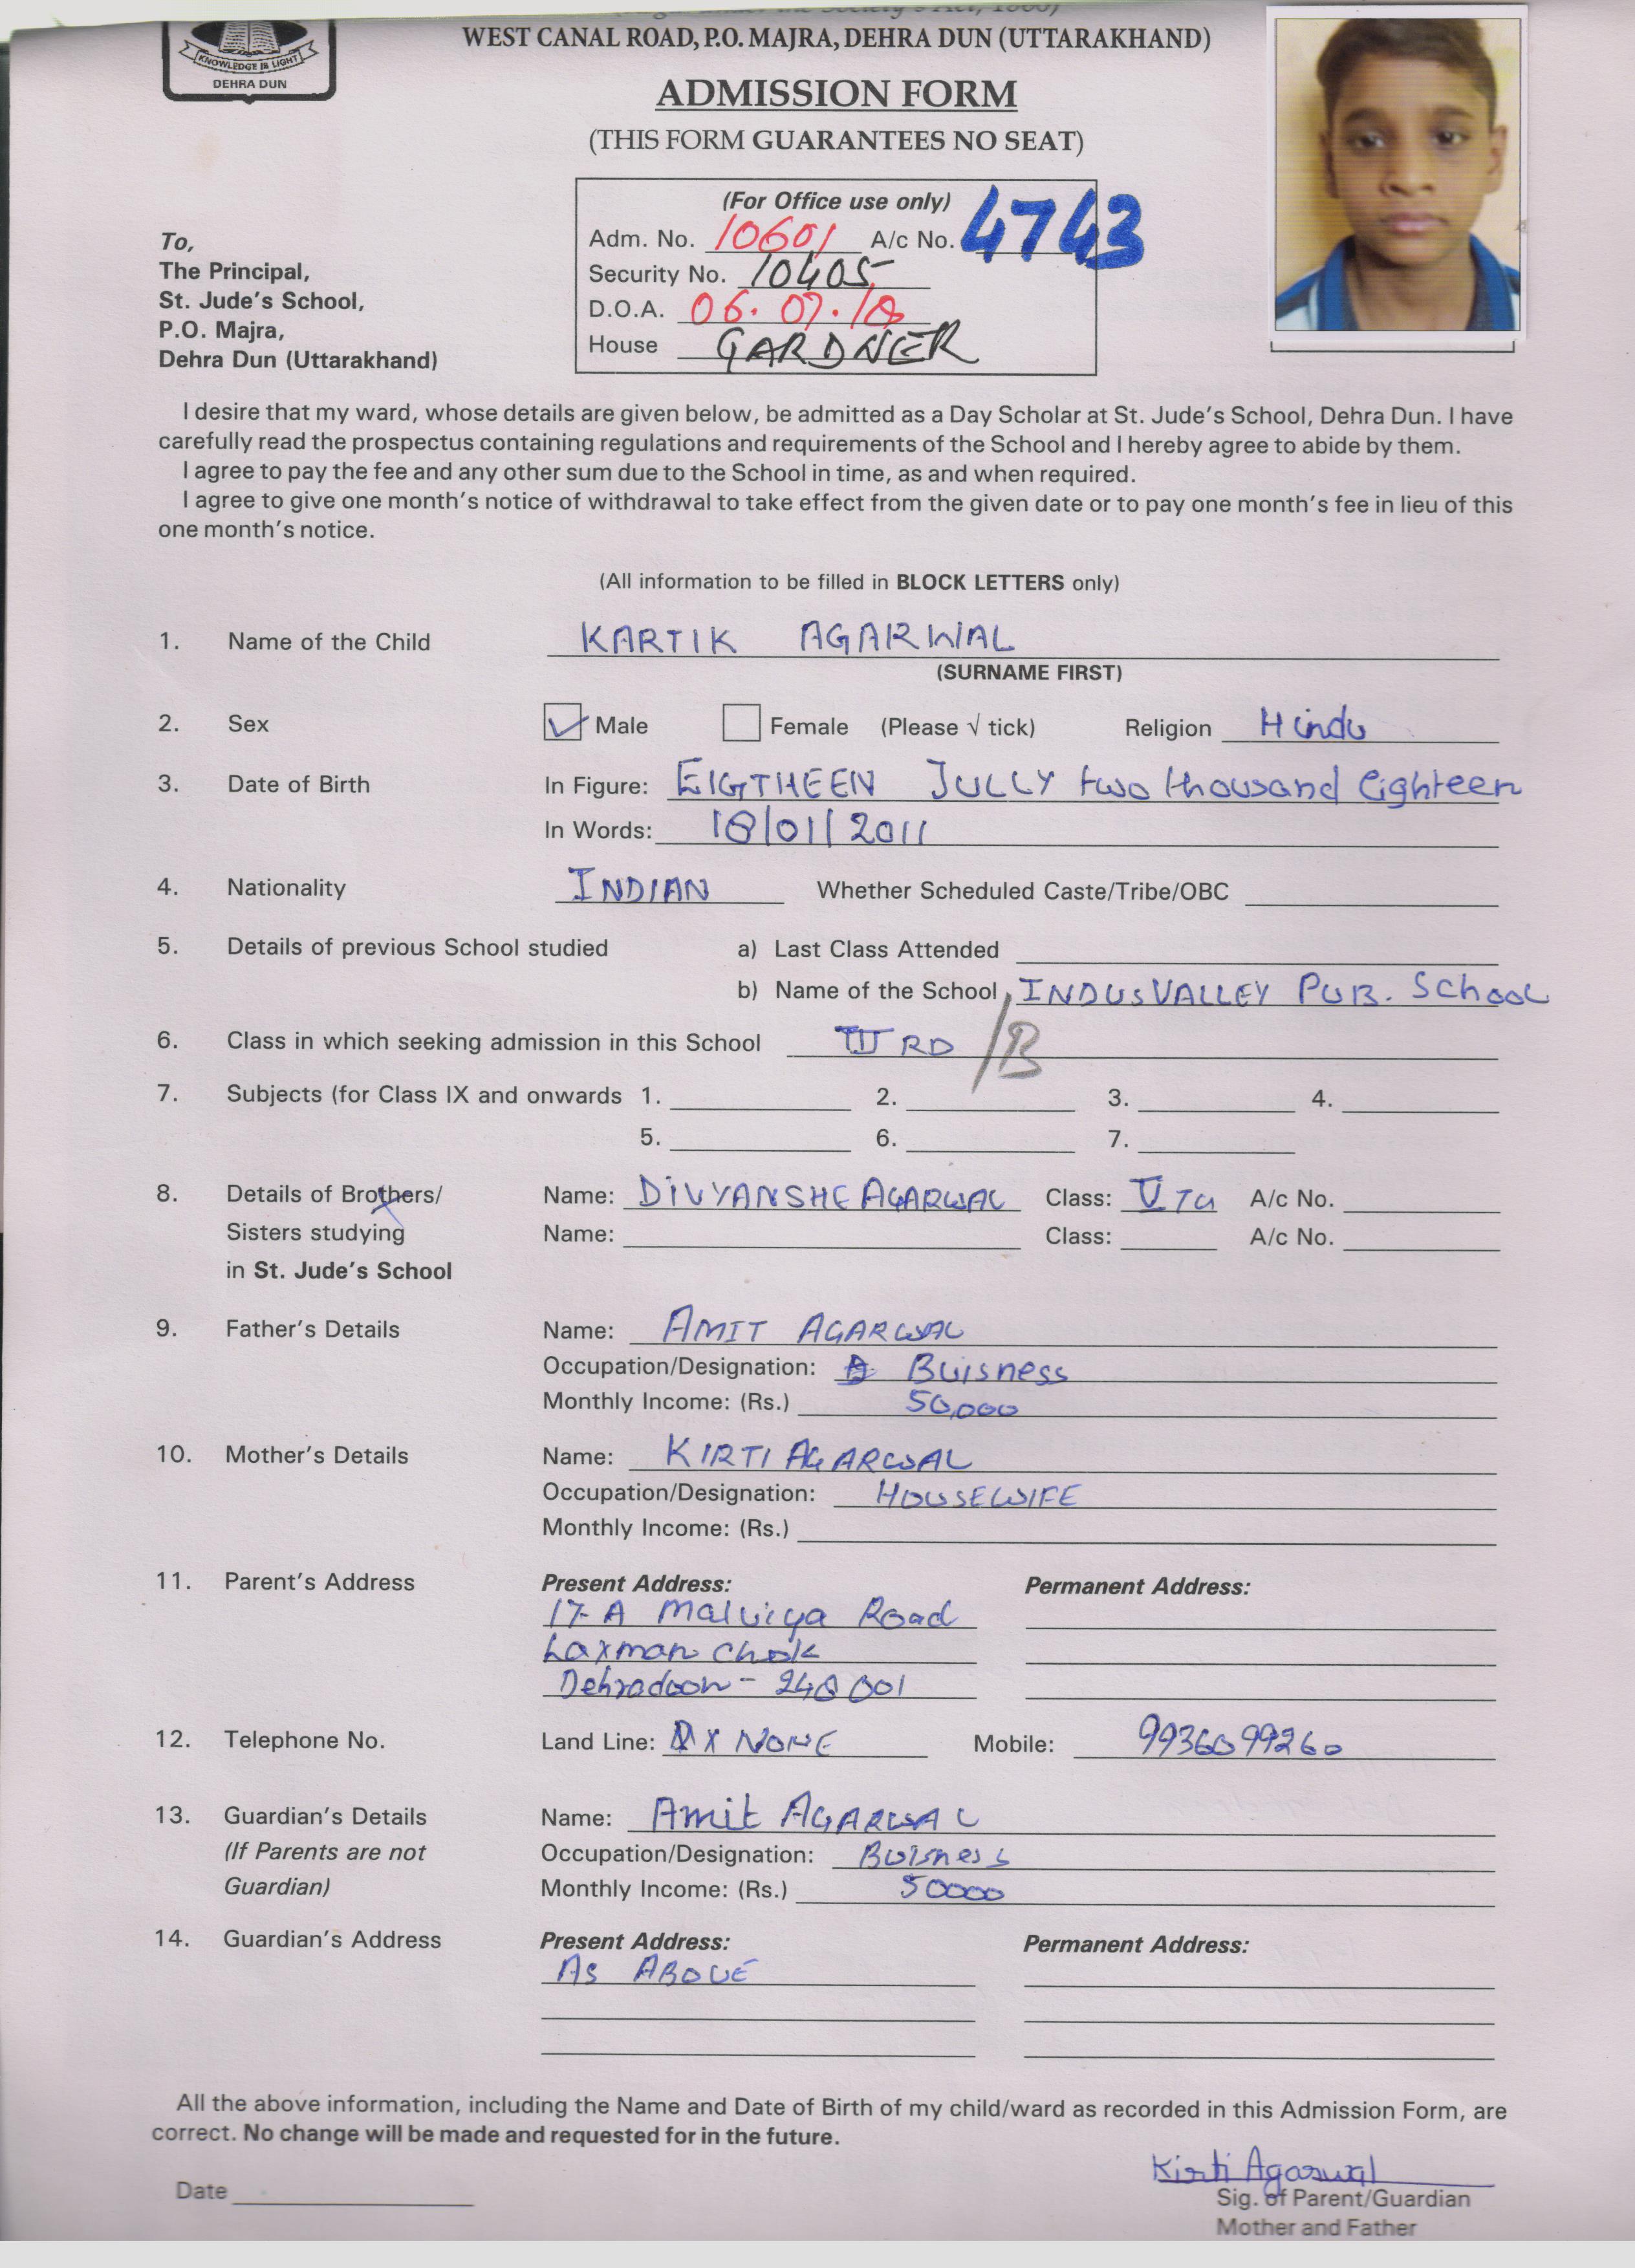 KNOWLEDGE IS LIGHT
DEHRA DUN
WEST CANAL ROAD, P.O. MAJRA, DEHRA DUN (UTTARAKHAND)
ADMISSION FORM
(THIS FORM GUARANTEES NO SEAT)
(For Office use only)
Adm. No. 10601 A/c No. 4743
Security No. 10405
D.O.A. 06.07.18
House GARDNER
To,
The Principal,
St. Jude's School,
P.O. Majra,
Dehra Dun (Uttarakhand)
I desire that my ward, whose details are given below, be admitted as a Day Scholar at St. Jude's School, Dehra Dun. I have
carefully read the prospectus containing regulations and requirements of the School and I hereby agree to abide by them.
I agree to pay the fee and any other sum due to the School in time, as and when required.
I agree to give one month's notice of withdrawal to take effect from the given date or to pay one month's fee in lieu of this
one month's notice.
(All information to be filled in BLOCK LETTERS only)
1. Name of the Child KARTIK AGARWAL
(SURNAME FIRST)
2. Sex Male Female (Please √ tick) Religion Hindu
3. Date of Birth In Figure: EIGTHEEN JULLY two thousand Eighteen
In Words: 18/01/2011
4. Nationality INDIAN Whether Scheduled Caste/Tribe/OBC
5. Details of previous School studied a) Last Class Attended
b) Name of the School INDUSVALLEY PUB. SCHOOL
6. Class in which seeking admission in this School III RD /B
7. Subjects (for Class IX and onwards 1. 2. 3. 4.
5. 6. 7.
8. Details of Brothers/ Name: DIVYANSHE AGARWAL Class: V TH A/c No.
Sisters studying Name: Class: A/c No.
in St. Jude's School
9. Father's Details Name: AMIT AGARWAL
Occupation/Designation: Buisness
Monthly Income: (Rs.) 50,000
10. Mother's Details Name: KIRTI AGARWAL
Occupation/Designation: HOUSEWIFE
Monthly Income: (Rs.)
11. Parent's Address Present Address: Permanent Address:
17-A Malviya Road
Laxman Chok
Dehradoon - 248001
12. Telephone No. Land Line: X NONE Mobile: 9936099260
13. Guardian's Details Name: Amit AGARWAL
(If Parents are not Occupation/Designation: Buisness
Guardian) Monthly Income: (Rs.) 50000
14. Guardian's Address Present Address: Permanent Address:
AS ABOVE
All the above information, including the Name and Date of Birth of my child/ward as recorded in this Admission Form, are
correct. No change will be made and requested for in the future.
Kirti Agarwal
Date Sig. of Parent/Guardian
Mother and Father